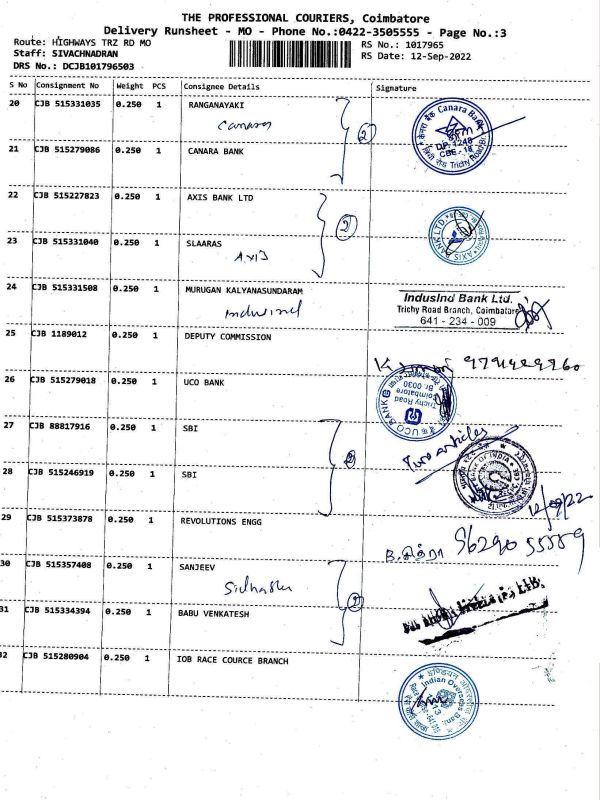 THE PROFESSIONAL COURIERS, Coimbatore
Delivery Runsheet - MO - Phone No.:0422-3505555 - Page No.:3
Route: HIGHWAYS TRZ RD MO
RS No.: 1017965
Staff: SIVACHNADRAN
RS Date: 12-Sep-2022
DRS No.: DCJB101796503
S No Consignment No Weight PCS Consignee Details Signature
20 CJB 515331035 0.250 1 RANGANAYAKI
Canara
2
Canara Bank
DP. 1248
CBE - 18
Trichy Road
21 CJB 515279086 0.250 1 CANARA BANK
22 CJB 515227823 0.250 1 AXIS BANK LTD
2
AXIS BANK LTD.
23 CJB 515331040 0.250 1 SLAARAS
AXIS
24 CJB 515331508 0.250 1 MURUGAN KALYANASUNDARAM
Indusind
IndusInd Bank Ltd.
Trichy Road Branch, Coimbatore
641 - 234 - 009
25 CJB 1189012 0.250 1 DEPUTY COMMISSION
26 CJB 515279018 0.250 1 UCO BANK
UCO BANK
Trichy Road
Coimbatore
Br. 0030
27 CJB 88817916 0.250 1 SBI
2
Two articles
28 CJB 515246919 0.250 1 SBI
BANK OF INDIA
29 CJB 515373878 0.250 1 REVOLUTIONS ENGG
B. சித்ரா
30 CJB 515357408 0.250 1 SANJEEV
2
31 CJB 515334394 0.250 1 BABU VENKATESH
32 CJB 515280904 0.250 1 IOB RACE COURCE BRANCH
Indian Overseas Bank